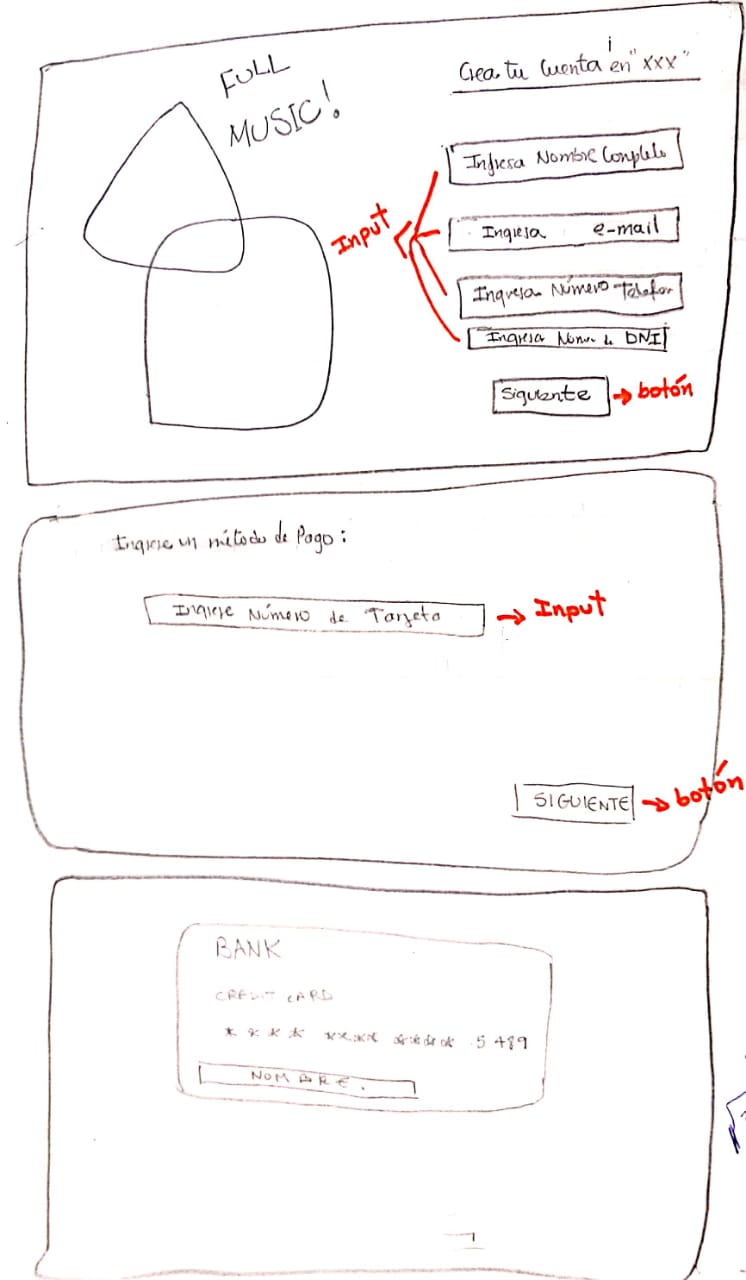 FULL
MUSIC!
Crea tu Cuenta en "XXX"
Ingresa Nombre Completo
Input
Ingresa e-mail
Ingresa Número Telefon
Ingresa Núm de DNI
Siguiente → botón
Ingrese un método de Pago:
Ingrese Número de Tarjeta → Input
SIGUIENTE → botón
BANK
CREDIT CARD
**** **** **** 5489
NOMBRE.